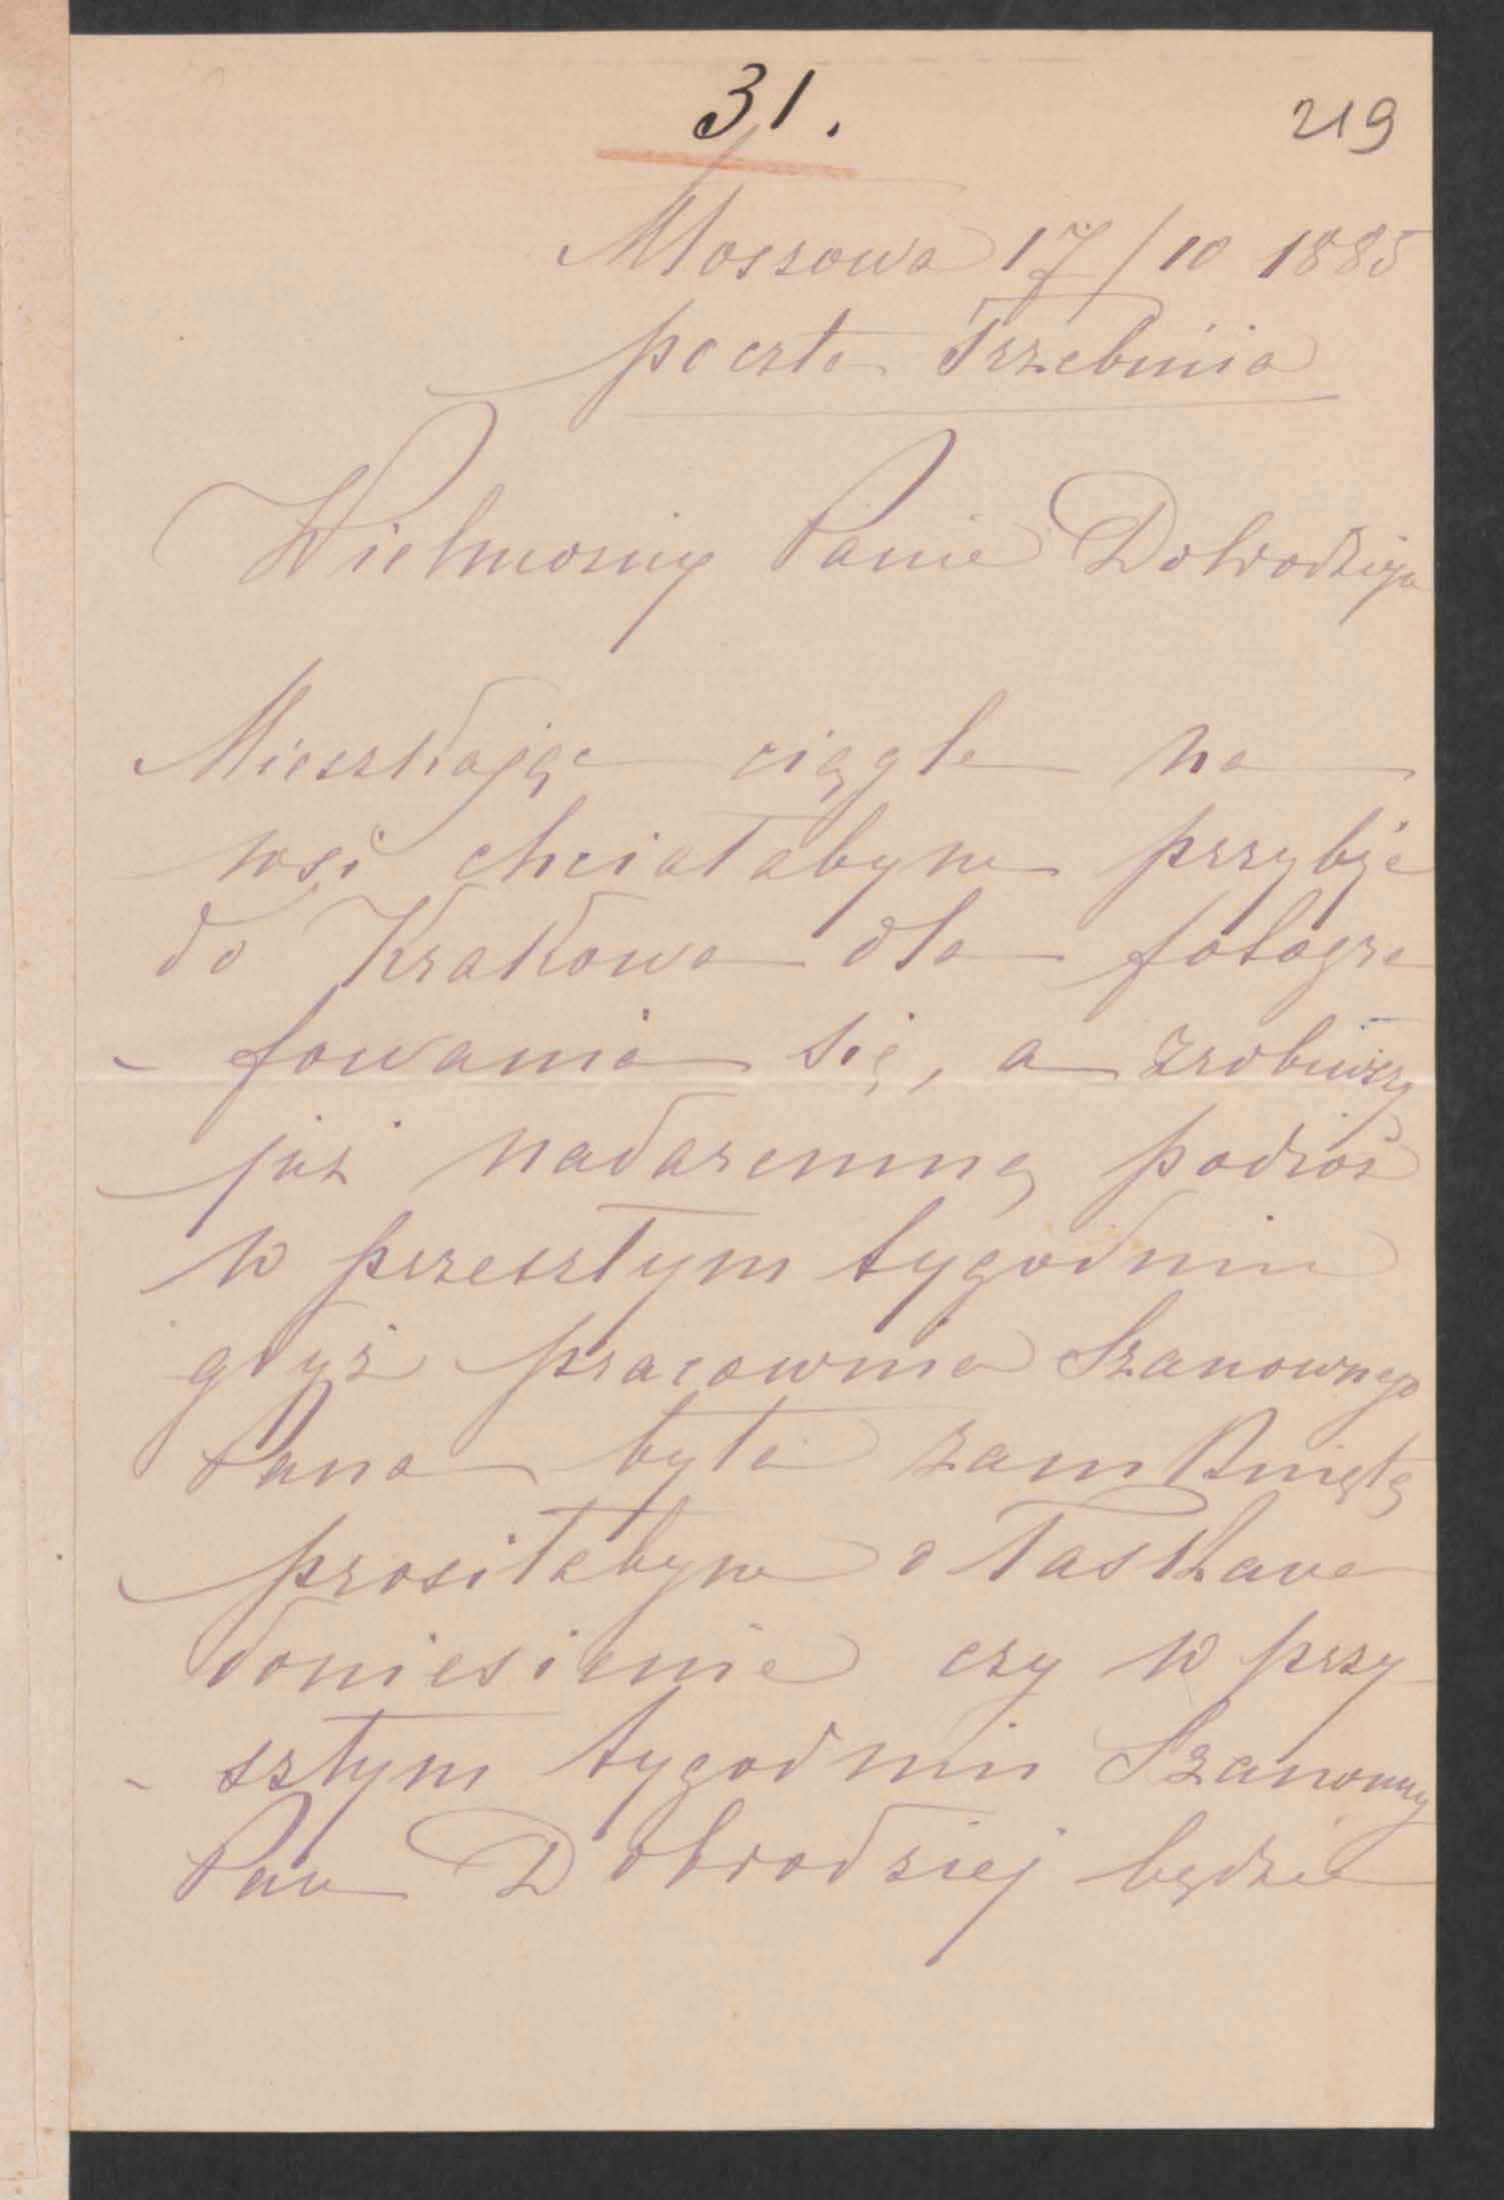 31.
219
Młoszowa 17/10 1885
poczta Trzebinia
Wielmożny Panie Dobrodzieju
Mieszkając ciągle na
wsi chciałabym przybyć
do Krakowa dla fotogra
- fowania się, a zrobiwszy
już nadaremną podróż
w przeszłym tygodniu
gdyż pracownia Szanownego
Pana była zamkniętą
prosiłabym o łaskawe
doniesienie czy w przy
- szłym tygodniu Szanowny
Pan Dobrodziej będzie